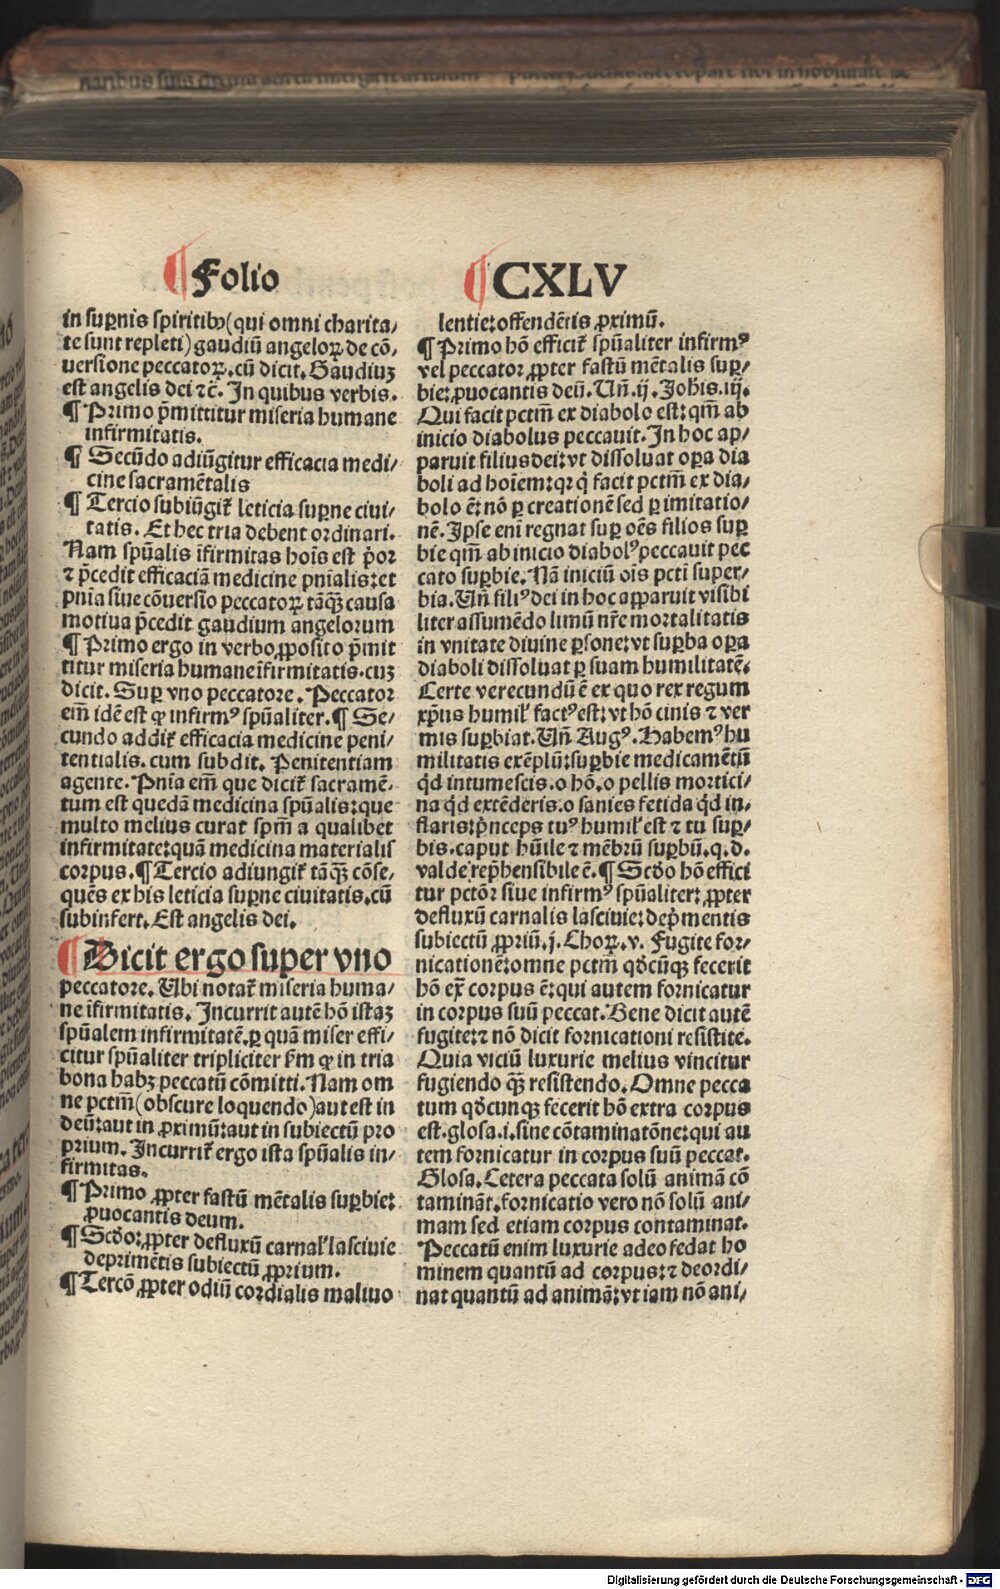 ¶ Folio
¶ CXLV
in suꝑnis spiritibꝰ (qui omni charita/
te sunt repleti) gaudiū angeloꝝ de cō/
uersione peccatoꝝ. cū dicit. Gaudiuꝫ
est angelis dei ⁊c̄. In quibus verbis.
¶ Primo p̄mittitur miseria humane
infirmitatis.
¶ Secūdo adiūgitur efficacia medi/
cine sacramētalis
¶ Tercio subiūgit᷑ leticia suꝑne ciui/
tatis. Et hec tria debent ordinari.
Nam spūalis īfirmitas hoīs est p̄or
⁊ p̄cedit efficaciā medicine pn̄ialis: et
pn̄ia siue cōuersio peccatoꝝ tāqꝫ̄ causa
motiua p̄cedit gaudium angelorum
¶ Primo ergo in verbo ꝓposito p̄mit
titur miseria humane īfirmitatis. cuꝫ
dicit. Suꝑ vno peccatore. Peccator
em̄ idē est qꝫ infirmꝰ spūaliter. ¶ Se/
cundo addit᷑ efficacia medicine peni/
tentialis. cum subdit. Penitentiam
agente. Pn̄ia em̄ que dicit᷑ sacramē/
tum est quedā medicina spūalis: que
multo melius curat sp̄m a qualibet
infirmitate: quā medicina materialis
corpus. ¶ Tercio adiungit᷑ tāqꝫ̄ cōse/
quēs ex his leticia suꝑne ciuitatis. cū
subinfert. Est angelis dei.
¶ Dicit ergo super vno
peccatore. Ubi notat᷑ miseria huma/
ne īfirmitatis. Incurrit autē hō istaꝫ
spūalem infirmitatē. ꝑ quā miser effi/
citur spūaliter tripliciter ẜm qꝫ in tria
bona habꝫ peccatū cōmitti. Nam om
ne pctm̄ (obscure loquendo) aut est in
deū: aut in ꝓximū: aut in subiectū pro
prium. Incurrit᷑ ergo ista spūalis in/
firmitas.
¶ Primo ꝓpter fastū mētalis suꝑbie:
ꝓuocantis deum.
¶ Scd̄o: ꝓpter defluxū carnal̓ lasciuie
deprimētis subiectū ꝓprium.
¶ Tercō ꝓpter odiū cordialis maliuo
lentie: offendētis ꝓximū.
¶ Primo hō efficit᷑ spūaliter infirmꝰ
vel peccator ꝓpter fastū mētalis suꝑ/
bie: ꝓuocantis deū. Un̄. ij. Joh̄is. iij.
Qui facit pctm̄ ex diabolo est: qm̄ ab
inicio diabolus peccauit. In hoc ap/
paruit filius dei: vt dissoluat oꝑa dia
boli ad hoīem: qꝛ q̇ facit pctm̄ ex dia/
bolo ē: nō ꝑ creationē sed ꝑ imitatio/
nē. Ipse eni regnat suꝑ oēs filios suꝑ
bie qm̄ ab inicio diabolꝰ peccauit pec
cato suꝑbie. Nā iniciū oīs pcti super/
bia. Un̄ filiꝰ dei in hoc apparuit visibi
liter assumēdo limū nr̄e mortalitatis
in vnitate diuine ꝑsone: vt suꝑba oꝑa
diaboli dissoluat ꝑ suam humilitatē.
Certe verecundū ē ex quo rex regum
xp̄us humil̓ factꝰ est: vt hō cinis ⁊ ver
mis suꝑbiat. Un̄ Augꝰ. Habemꝰ hu
militatis exēplū: suꝑbie medicamētū
qd̄ intumescis. o hō. o pellis mortici/
na qd̄ extēderis. o sanies fetida qd̄ in/
flaris: p̄nceps tuꝰ humil̓ est ⁊ tu suꝑ/
bis. caput hūile ⁊ mēbrū suꝑbū. q. d.
valde rep̄hensibile ē. ¶ Scd̄o hō effici
tur pctōr siue infirmꝰ spūaliter: ꝓpter
defluxū carnalis lasciuie: dep̄mentis
subiectū ꝓpriū. j. Choꝝ. v. Fugite for/
nicationē: omne pctm̄ qd̄cūqꝫ fecerit
hō ex̄ corpus ē: qui autem fornicatur
in corpus suū peccat. Bene dicit autē
fugite: ⁊ nō dicit fornicationi resistite.
Quia viciū luxurie melius vincitur
fugiendo qꝫ̄ resistendo. Omne pecca
tum qd̄cunqꝫ fecerit hō extra corpus
est. glosa. i. sine cōtaminatōne: qui au
tem fornicatur in corpus suū peccat.
Glosa. Cetera peccata solū animā cō
tamināt. fornicatio vero nō solū ani/
mam sed etiam corpus contaminat.
Peccatū enim luxurie adeo fedat ho
minem quantū ad corpus: ⁊ deordi/
nat quantū ad animā: vt iam nō ani/
Digitalisierung gefördert durch die Deutsche Forschungsgemeinschaft - DFG